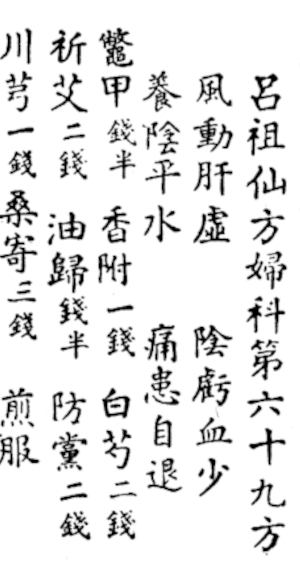 呂祖仙方婦科第六十九方
風動肝虛 陰虧血少
養陰平水 痛患自退
鱉甲錢半 香附一錢 白芍二錢
祈艾二錢 油歸錢半 防黨二錢
川芎一錢 桑寄三錢 煎服